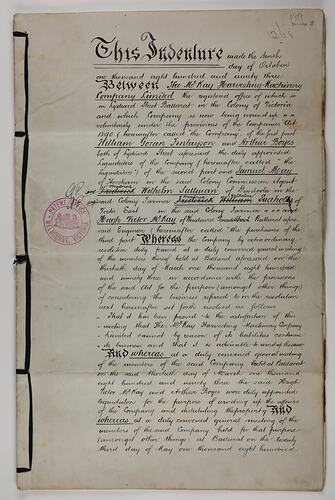 This Indenture made the
day of October
one thousand eight hundred and ninety three
Between The McKay Harvesting Machinery
Company Limited the registered office of which is
in Lydiard Street Ballarat in the Colony of Victoria
and which Company is now being wound up
voluntarily under the provisions of the Companies Act
1890 (hereinafter called "the Company") of the first part
William Finlayson and Arthur Boyes
both of Lydiard Street aforesaid the duly appointed
Liquidators of the Company (hereinafter called "the
liquidators") of the second part and Samuel McCay
of in the said Colony Commission Agent
Wilhelm of in the
said Colony Farmer William
in the said Colony Farmer and
Hugh Victor McKay of Street Ballarat
said Engineer (hereinafter called "the purchasers of the
third part Whereas the Company by extra ordinary
resolution duly passed at a duly convened general meeting
of the members thereof held at Ballarat aforesaid on the
thirtieth day of March one thousand eight hundred and
ninety three in accordance with the provisions
of the said Act for the purpose (amongst other things)
of considering the
next hereinafter set forth resolved as follows
That it has been proved to the satisfaction of this
meeting that The McKay Harvesting Machinery Company
Limited cannot by reason of its liabilities continue
its business and that it is advisable to wind up the same
And whereas at a duly convened general meeting
of the members of the said Company held at Ballarat
on the said thirtieth day of March one thousand
eight hundred and ninety three the said Hugh
Victor McKay and Arthur Boyes were duly appointed
liquidators for the purpose of winding up the affairs
of the Company and distributing the property And
whereas at a duly convened general meeting of the
members of the said Company held for that purpose
(amongst other things) at Ballarat on the twenty
third day of May one thousand eight hundred